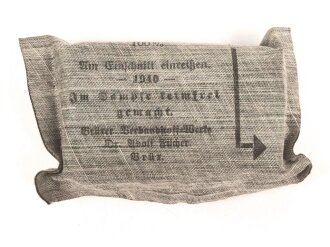 100%
Am Einschnitt einreißen.
— 1940 —
Im Dampfe keimfrei
gemacht.
Brüxer Verbandstoff-Werke
Dr. Adolf
Brüx.